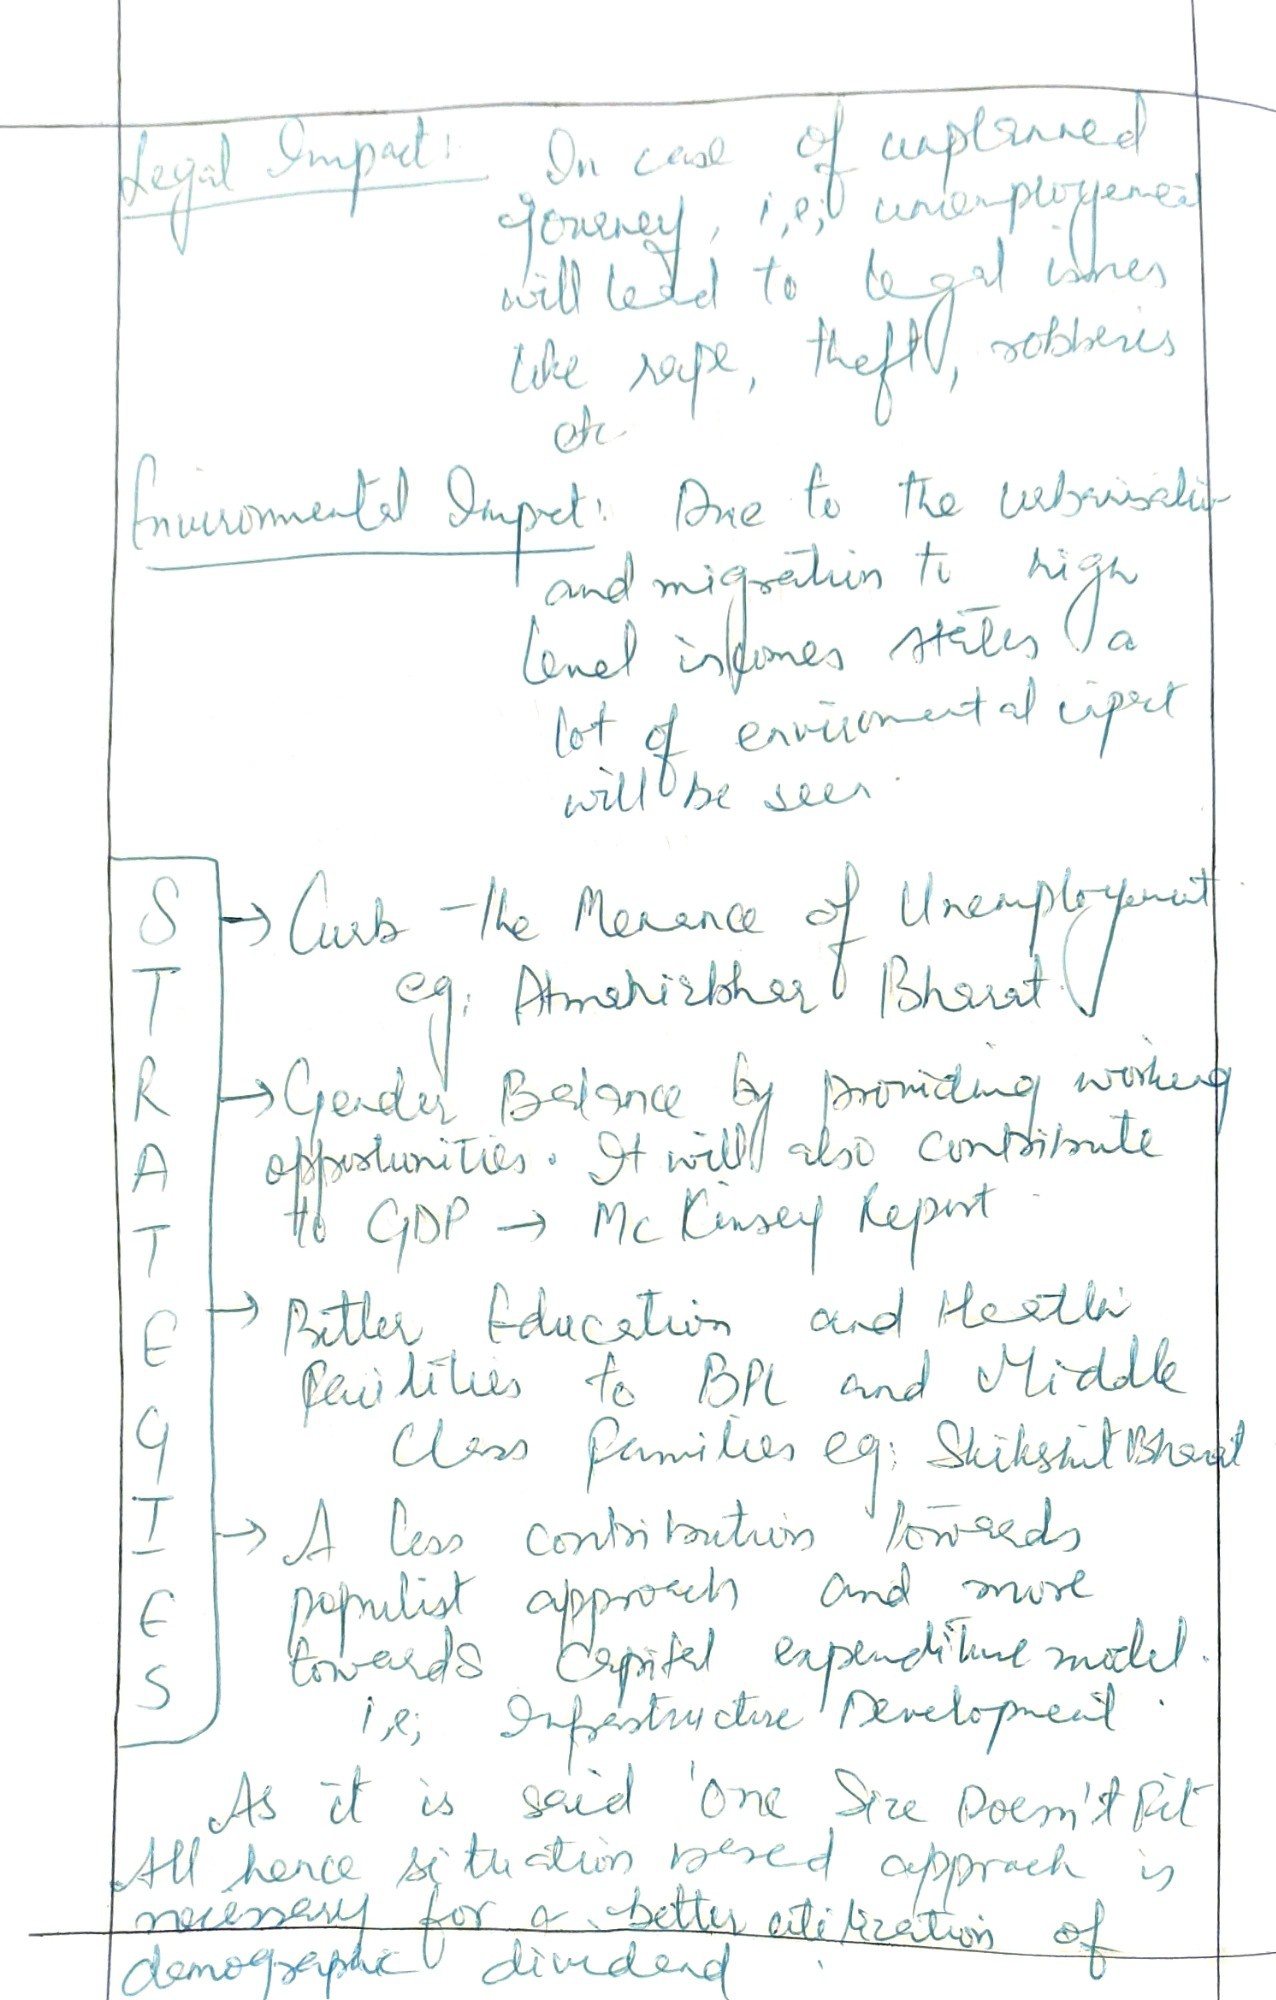 Legal Impact: In case of unplanned
journey, i,e; unemployement
will lead to legal issues
like rape, theft, robberies
etc
Environmental Impact: Due to the urbanisation
and migration to high
level incomes states a
lot of envirnmental impact
will be seen.
STRATEGIES
→ Curb the Menance of Unemployment
eg; Atmanirbhar Bharat.
→ Gender Balance by providing working
opportunities. It will also contribute
to GDP → Mc Kinsey Report.
→ Better Education and Health
facilities to BPL and Middle
Class families eg; Shikshit Bharat
→ A less contribution towards
populist approach and more
towards capital expenditure model.
i,e; Infrastructure Development.
As it is said 'One Size Doesn't Fit
All hence situation based approach is
necessary for a better utilization of
demographic dividend.